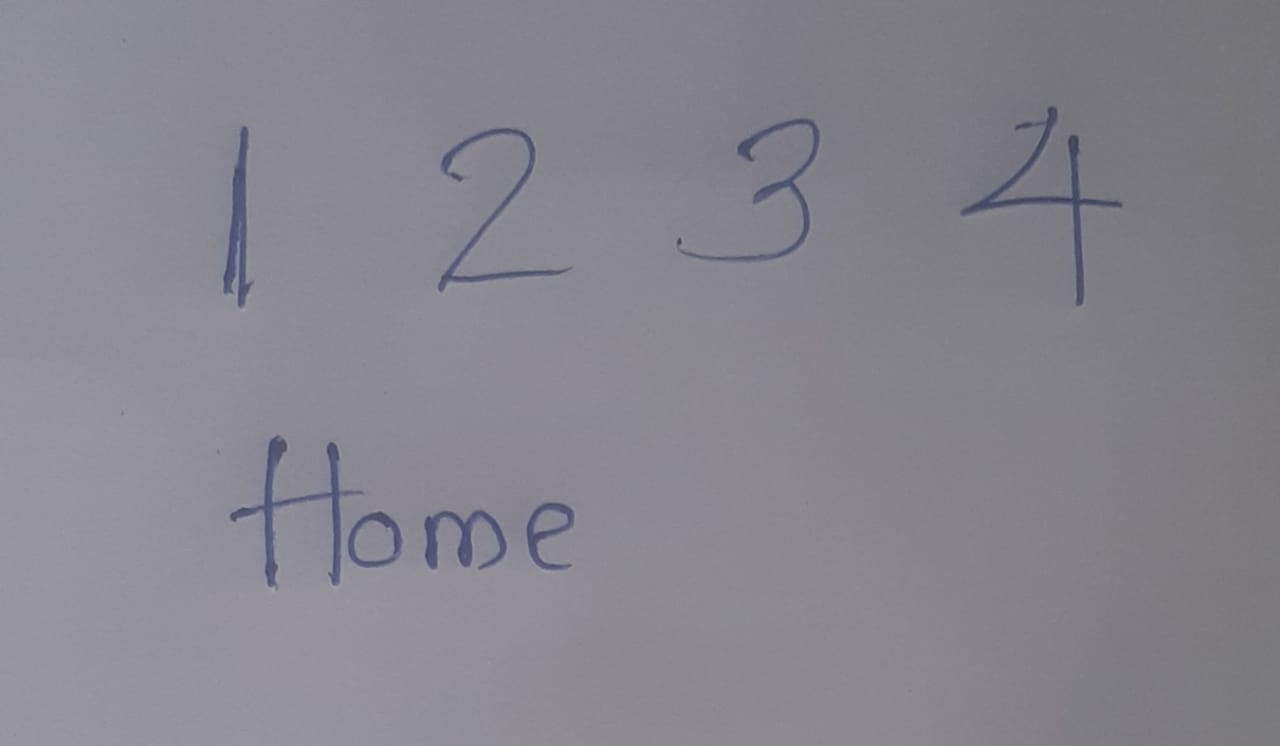 1 2 3 4
Home